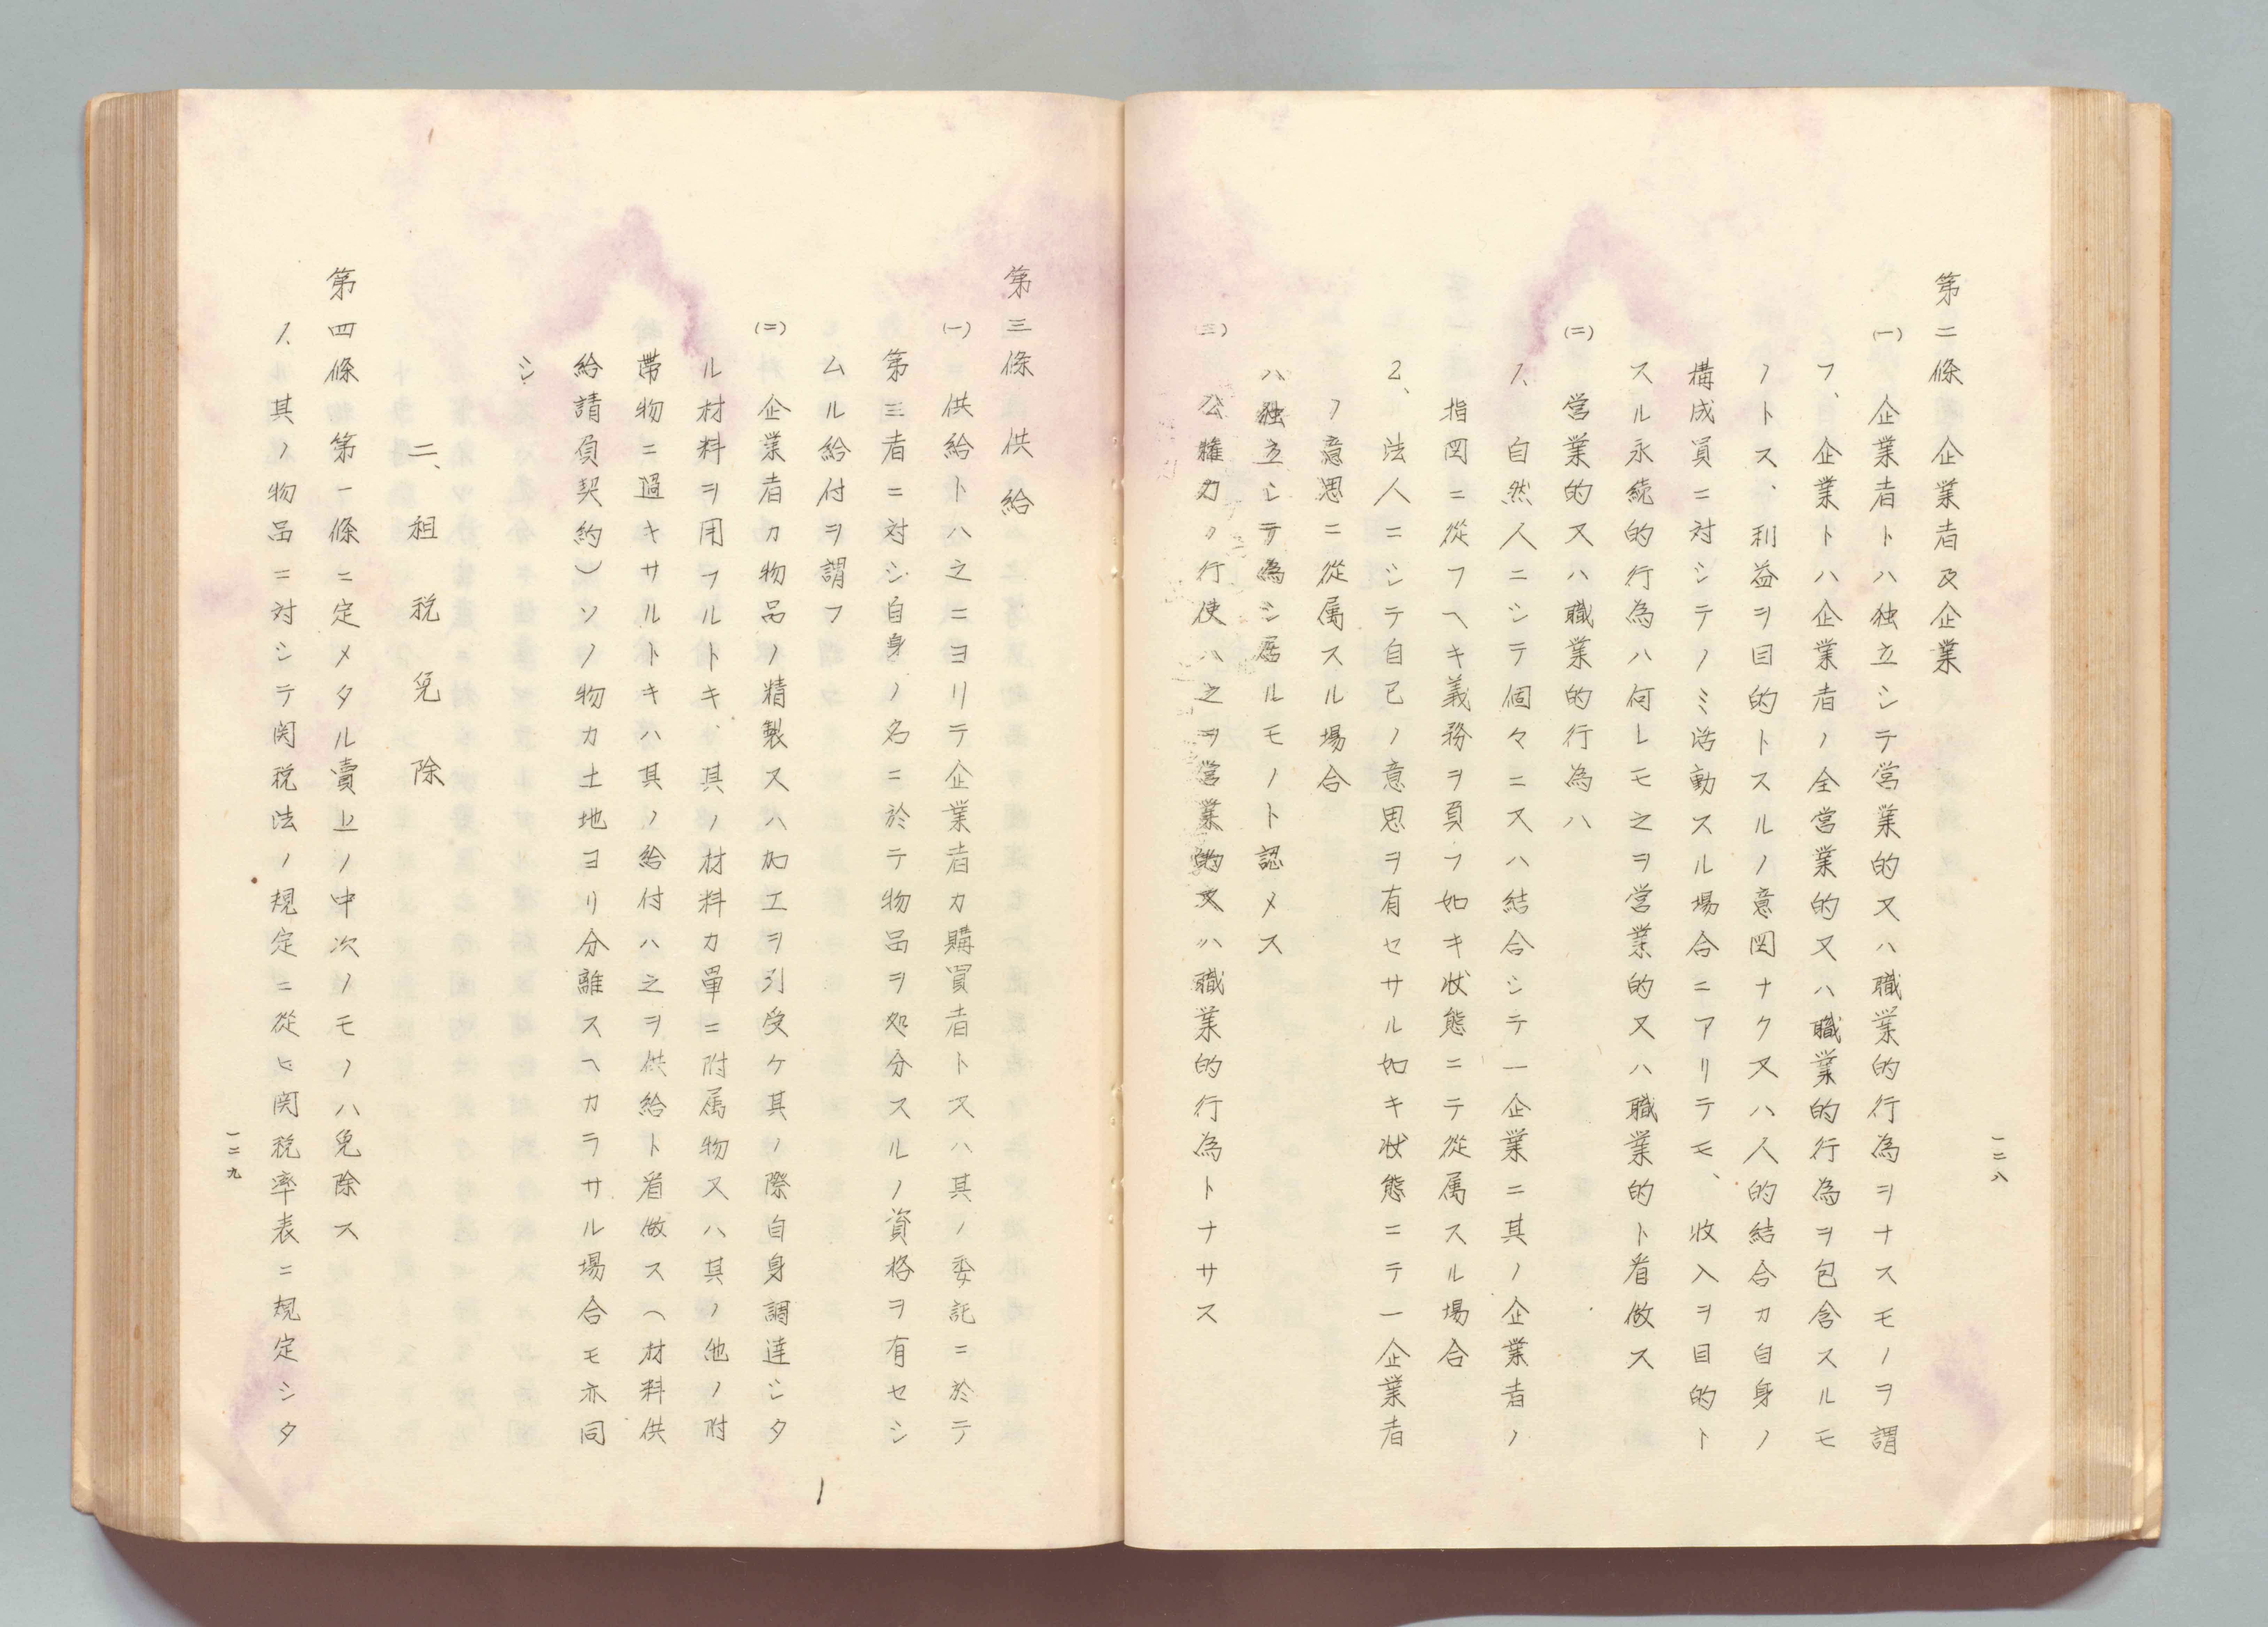 一二八
第二條　企業者及企業
(一)　企業者トハ独立シテ営業的又ハ職業的行為ヲナスモノヲ謂
フ、企業トハ企業者ノ全営業的又ハ職業的行為ヲ包含スルモ
ノトス、利益ヲ目的トスルノ意図ナク又ハ人的結合カ自身ノ
構成員ニ対シテノミ活動スル場合ニアリテモ、収入ヲ目的ト
スル永続的行為ハ何レモ之ヲ営業的又ハ職業的ト看做ス
(二)　営業的又ハ職業的行為ハ
1、自然人ニシテ個々ニ又ハ結合シテ一企業ニ其ノ企業者ノ
指図ニ從フヘキ義務ヲ負フ如キ状態ニテ從属スル場合
2、法人ニシテ自己ノ意思ヲ有セサル如キ状態ニテ一企業者
ノ意思ニ從属スル場合
ハ独立シテ為シ居ルモノト認メス
(三)　公権力ノ行使ハ之ヲ営業的又ハ職業的行為トナサス
第三條　供給
(一)　供給トハ之ニヨリテ企業者カ購買者ト又ハ其ノ委託ニ於テ
第三者ニ対シ自身ノ名ニ於テ物品ヲ処分スルノ資格ヲ有セシ
ムル給付ヲ謂フ
(二)　企業者カ物品ノ精製又ハ加工ヲ引受ケ其ノ際自身調達シタ
ル材料ヲ用フルトキ、其ノ材料カ單ニ附属物又ハ其ノ他ノ附
帯物ニ過キサルトキハ其ノ給付ハ之ヲ供給ト看做ス（材料供
給請負契約）ソノ物カ土地ヨリ分離スヘカラサル場合モ亦同
シ
二、租税免除
第四條　第一條ニ定メタル賣上ノ中次ノモノハ免除ス
1、其ノ物品ニ対シテ関税法ノ規定ニ從ヒ関税率表ニ規定シタ
一二九
1